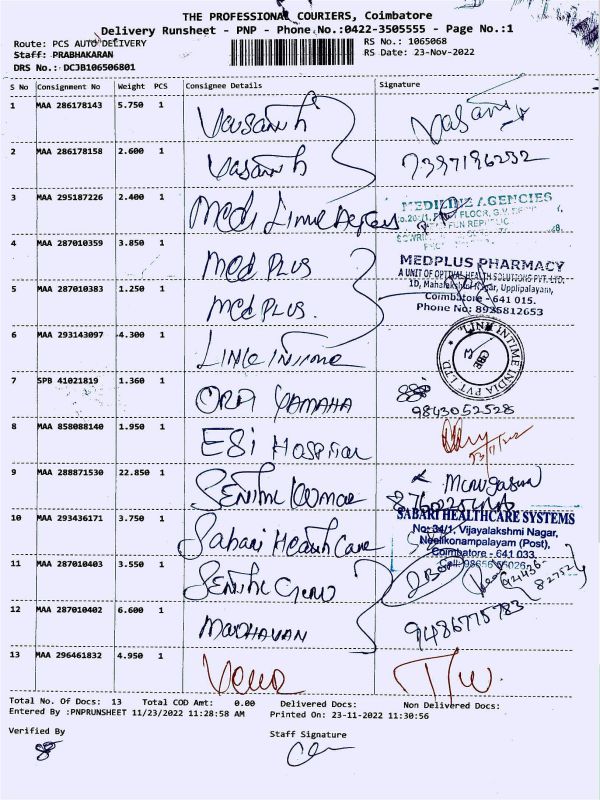 THE PROFESSIONAL COURIERS, Coimbatore
Delivery Runsheet - PNP - Phone No.:0422-3505555 - Page No.:1
Route: PCS AUTO DELIVERY
RS No.: 1065068
Staff: PRABHAKARAN
RS Date: 23-Nov-2022
DRS No.: DCJB106506801
S No Consignment No Weight PCS Consignee Details Signature
1 MAA 286178143 5.750 1 Vasanth Vasanth
2 MAA 286178158 2.600 1 Vasanth 7397196232
3 MAA 295187226 2.400 1 Medi Line MEDILINE AGENCIES
FLOOR, G.V.
FUN REPUBLIC
4 MAA 287010359 3.850 1 Med PLUS MEDPLUS PHARMACY
A UNIT OF OPTIVAL HEALTH SOLUTIONS PVT. LTD.
5 MAA 287010383 1.250 1 Med PLUS. 1D, Mahalakshmi Nagar, Upplipalayam,
Coimbatore - 641 015.
Phone No: 8925812653
6 MAA 293143097 4.300 1 LINK INTIME LINK INTIME INDIA PVT. LTD
CBE
7 SPB 41021819 1.360 1 ORA YAMAHA
9843052528
8 MAA 858088140 1.950 1 ESI Hospital
9 MAA 288871530 22.850 1 Senthil Kumar Murugasan
10 MAA 293436171 3.750 1 Sabari Health Care SABARI HEALTHCARE SYSTEMS
No: 34/1, Vijayalakshmi Nagar,
Neelikonampalayam (Post),
Coimbatore - 641 033.
11 MAA 287010403 3.550 1 Senthil
12 MAA 287010402 6.600 1 MADHAVAN 9486775783
13 MAA 296461832 4.950 1
Total No. Of Docs: 13 Total COD Amt: 0.00 Delivered Docs: Non Delivered Docs:
Entered By :PNPRUNSHEET 11/23/2022 11:28:58 AM Printed On: 23-11-2022 11:30:56
Verified By Staff Signature